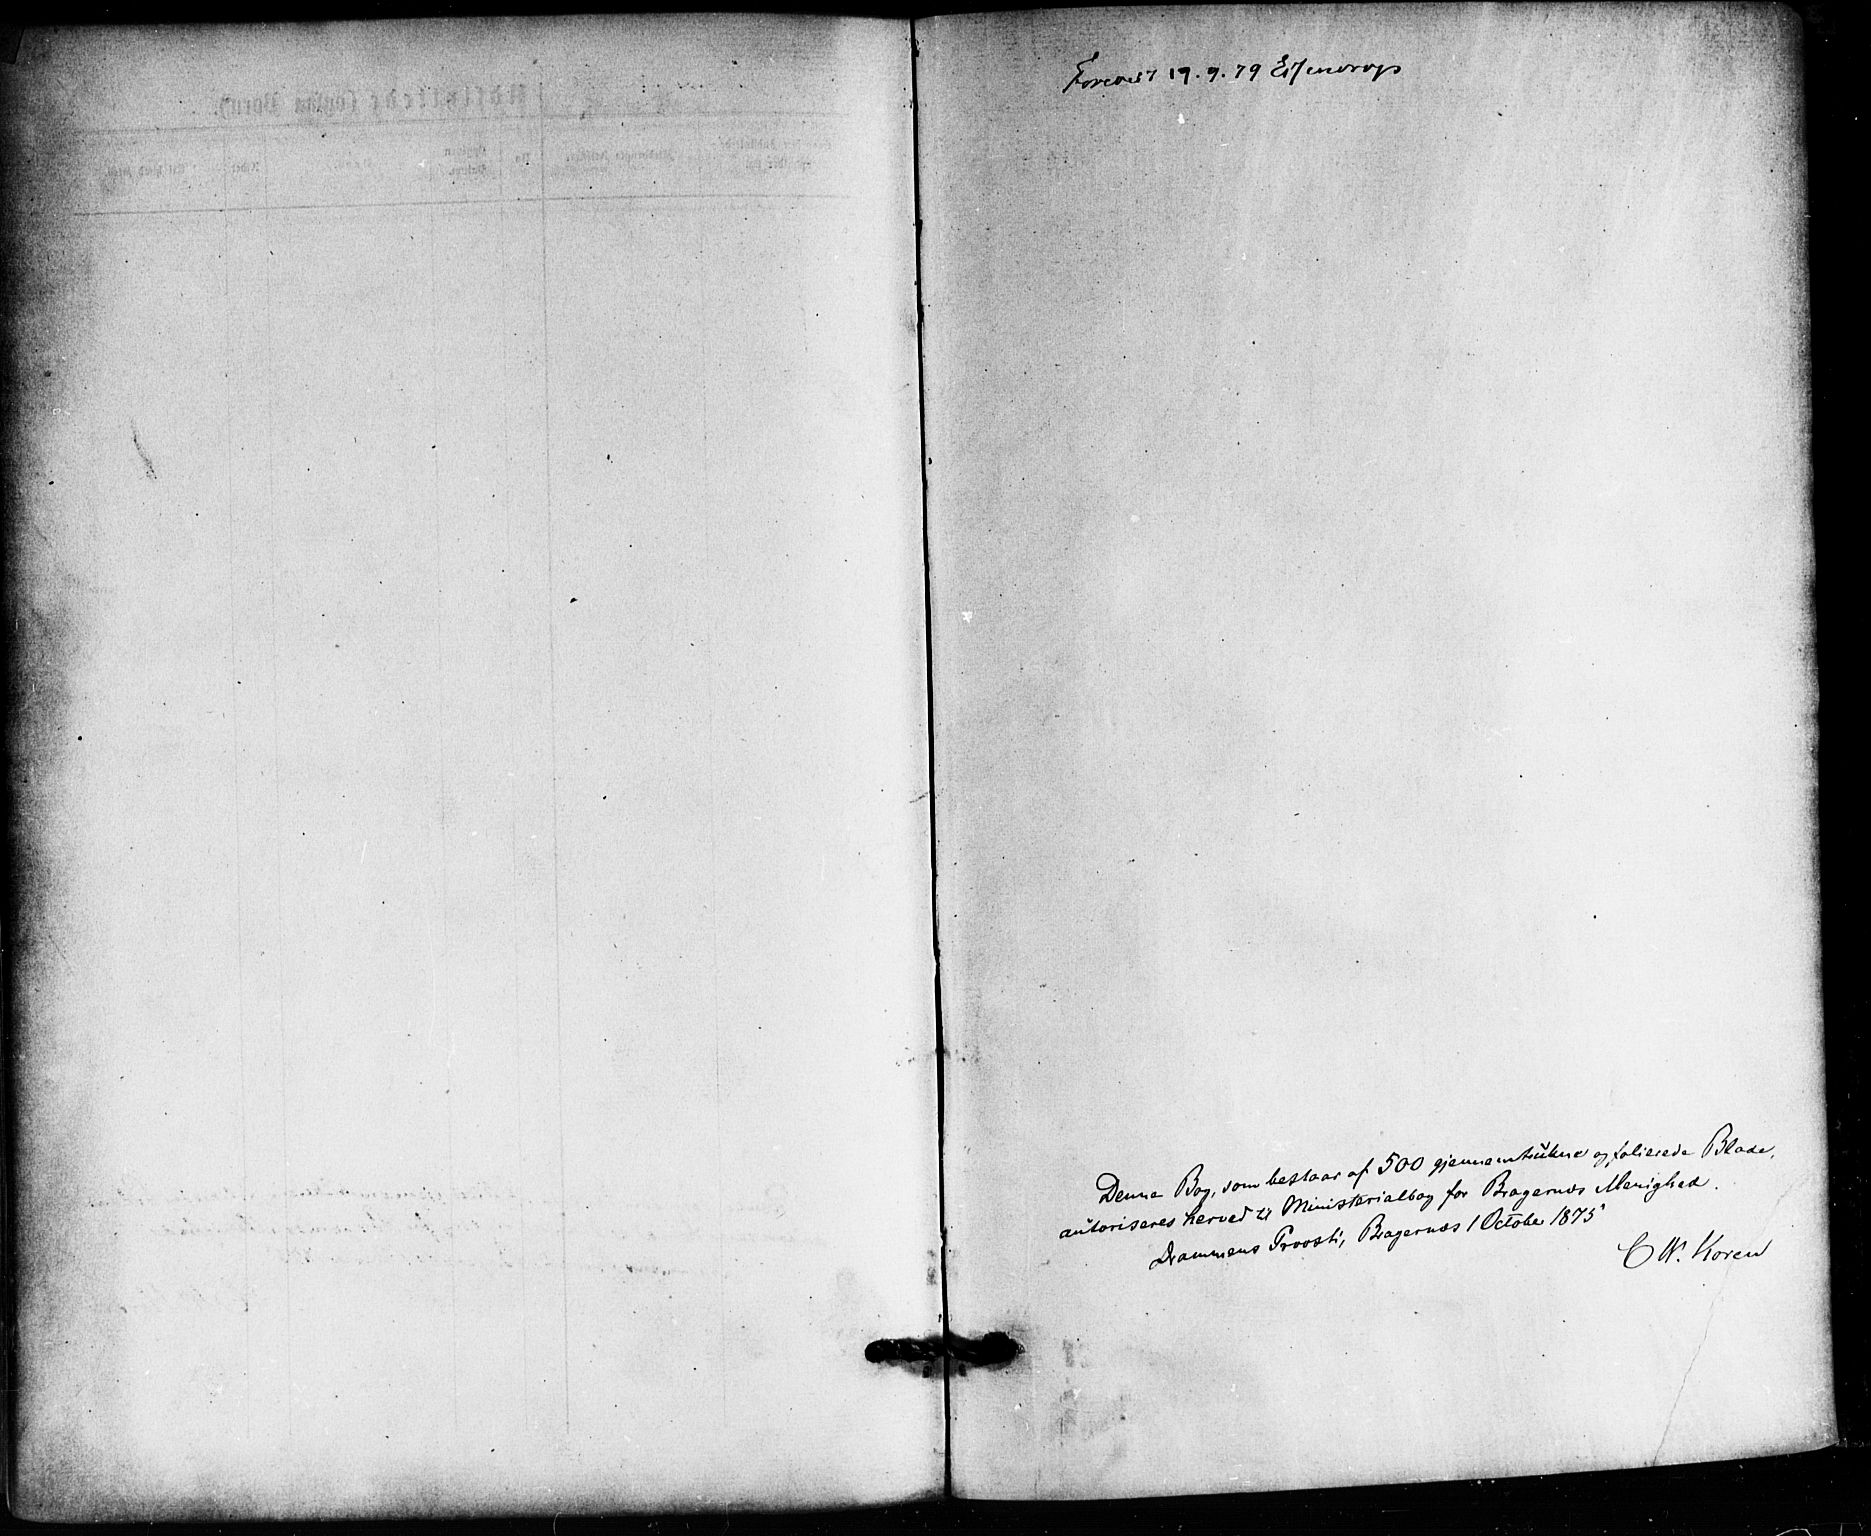 Forevist 19.9.79 Essendrop
Denne Bog, som bestaar af 500 gjennemtrukne og folierede Blade,
autoriseres herved til Ministerialbog for Bragernæs Menighed.
Drammens Provsti, Bragernæs 1 October 1875
C W. Koren